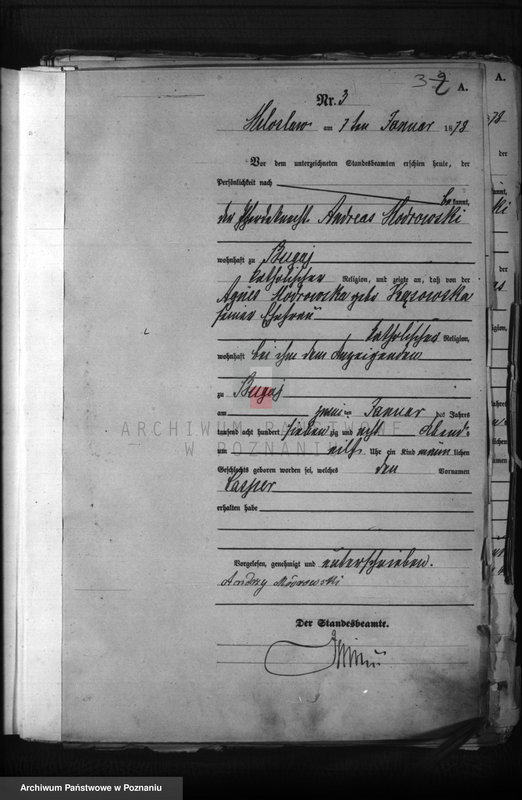 A.
Nr. 3
Miloslaw am 7ten Januar 1878
Vor dem unterzeichneten Standesbeamten erschien heute, der
Persönlichkeit nach
bekannt,
der Pferdeknecht Andreas Modrowski
wohnhaft zu Bugaj
katholischer Religion, und zeigte an, daß von der
Agnes Modrowska geb.
seiner Ehefrau
katholischer Religion,
wohnhaft bei ihm dem Anzeigenden
zu Bugaj
am zweiten Januar des Jahres
tausend acht hundert siebenzig und acht Abends
um eilf Uhr ein Kind männlichen
Geschlechts geboren worden sei, welches den Vornamen
Casper
erhalten habe
Vorgelesen, genehmigt und unterschrieben.
Andrzy Modrowski
Der Standesbeamte.
ARCHIWUM PAŃSTWOWE
W POZNANIU
Archiwum Państwowe w Poznaniu